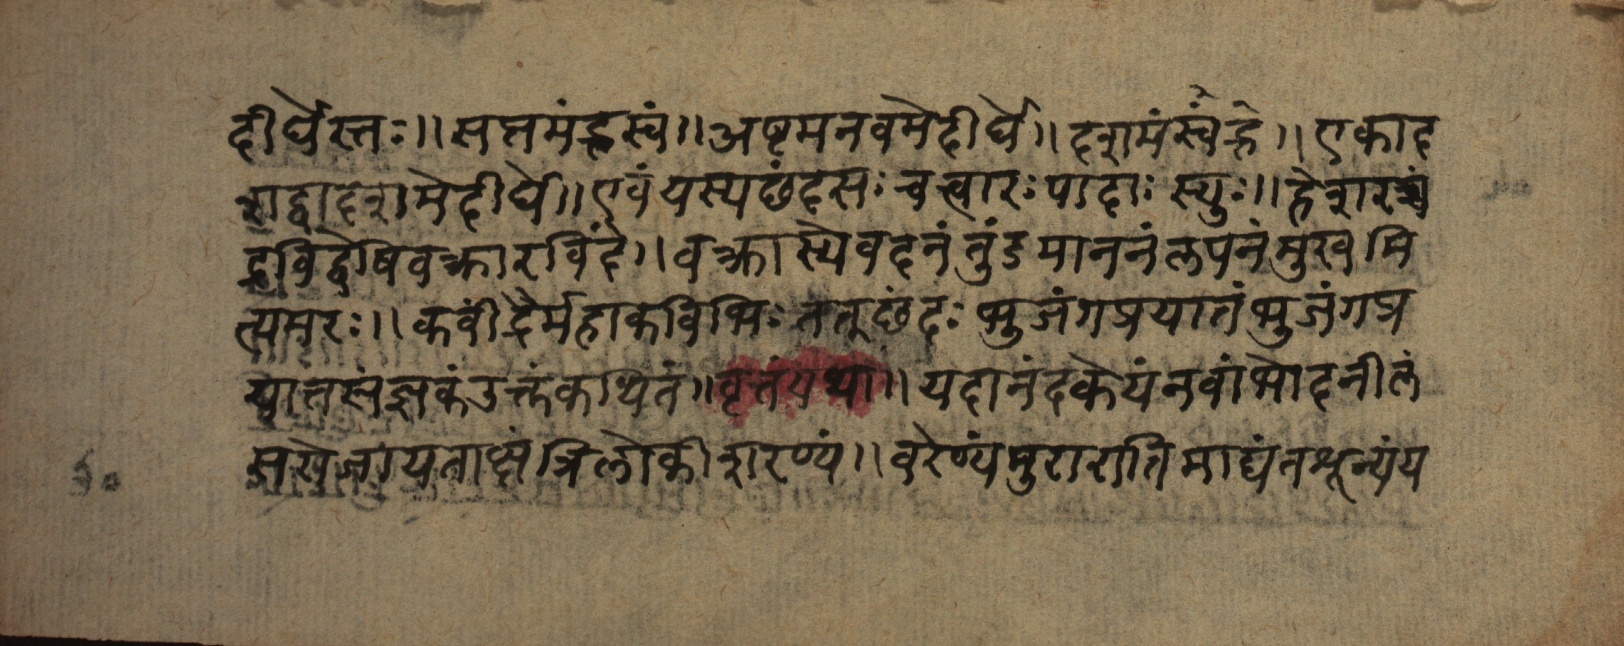 दीर्घेस्तः॥ सप्तमंह्रस्वं॥ अष्टमनवमेदीर्घे॥ दशमंस्वंह्रे॥ एकाद
शद्वादशमेदीर्घे॥ एवंयस्यछंदसः चत्वारः पादाः स्युः॥ हेशरच्चं
द्रविद्वेषिवक्त्रारविंदे॥ वक्त्रास्येवदनंतुंडमाननंलपनंमुखमि
त्यमरः॥ कवींद्रैर्महाकविभिः तत्छंदः भुजंगप्रयातंभुजंगप्र
यातसंज्ञकंउक्तंकथितं॥ वृत्तंयथा॥ यदानंदकेयंनवांभोदनीलं
त्रिलोकीशरण्यं॥ वरेण्यंमुरारातिमाद्यंतशून्यंय